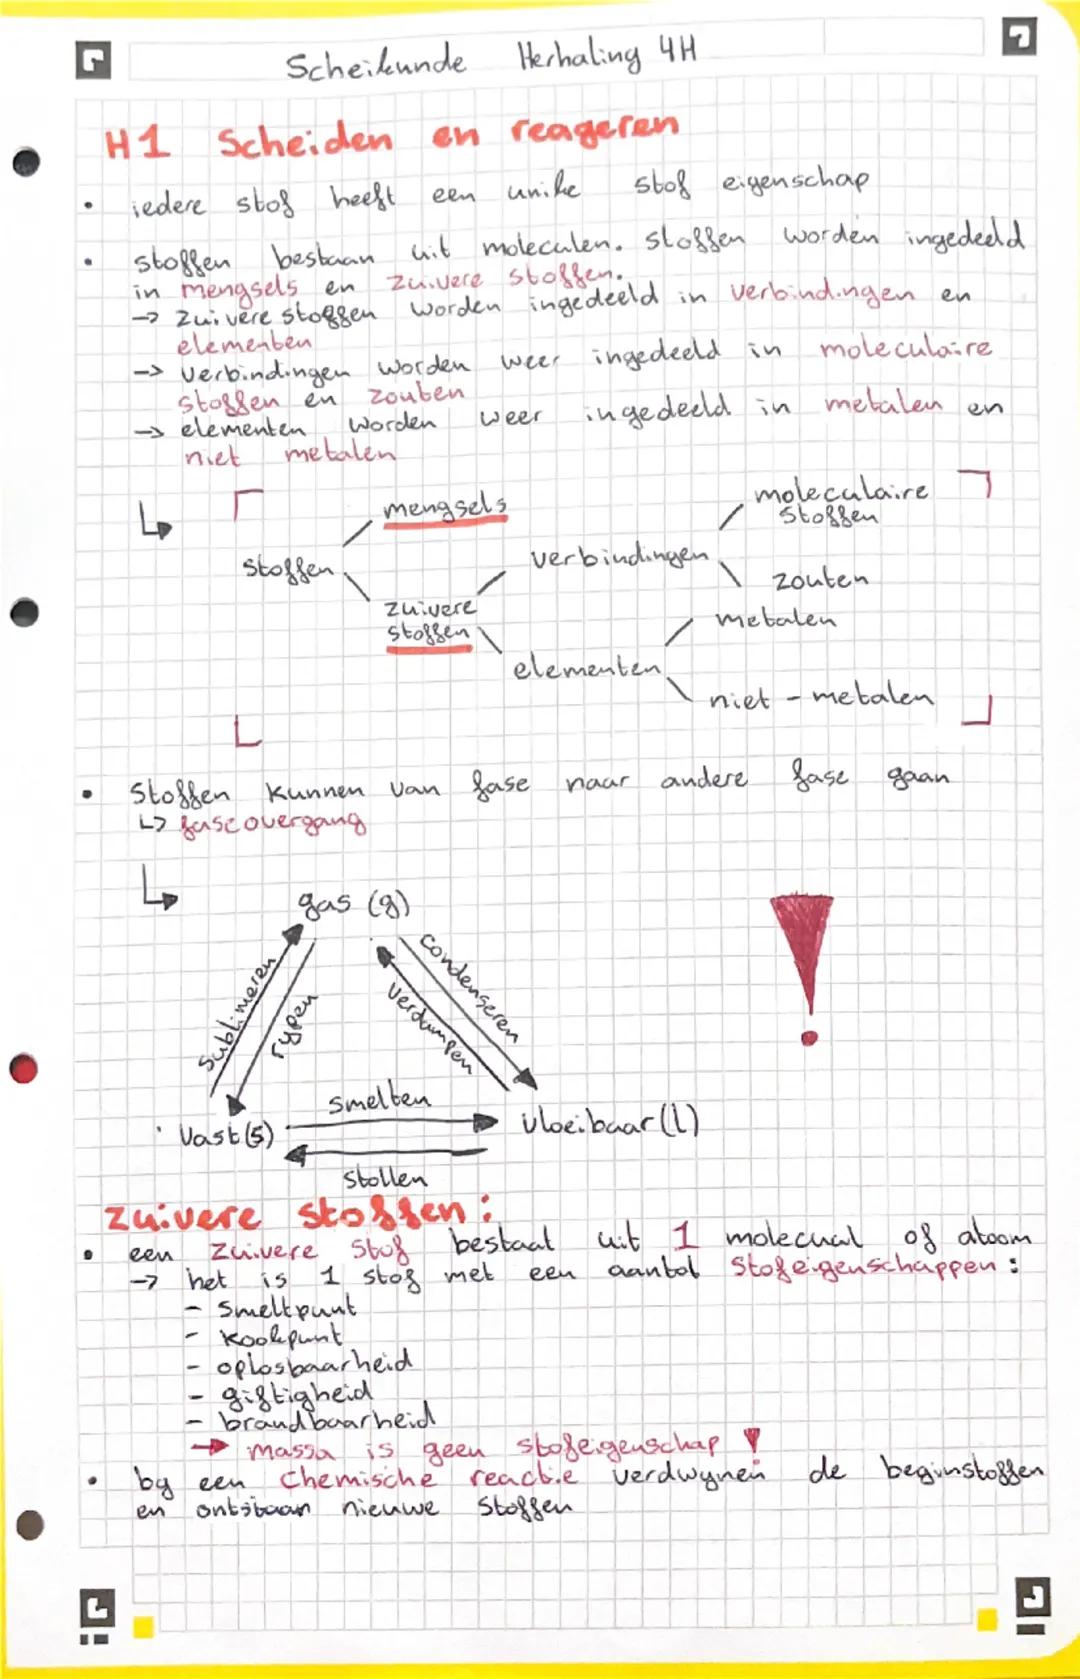 Scheikunde Herhaling 4H
H1 Scheiden en reageren
• iedere stof heeft een unike stof eigenschap
• stoffen bestaan uit moleculen. stoffen worden ingedeeld
in mengsels en zuivere stoffen.
→ zuivere stoffen worden ingedeeld in verbindingen en
elementen
→ verbindingen worden weer ingedeeld in moleculaire
stoffen en zouten
→ elementen worden weer ingedeeld in metalen en
niet metalen
mengsels
moleculaire
stoffen
stoffen
verbindingen
zouten
zuivere
stoffen
metalen
elementen
niet - metalen
• Stoffen kunnen van fase naar andere fase gaan
↳ faseovergang
gas (g)
Sublimeren
rypen
condenseren
verdampen
smelten
Vast (s)
vloeibaar (l)
stollen
zuivere stoffen:
• een zuivere stof bestaat uit 1 molecuul of atoom
→ het is 1 stof met een aantal stofeigenschappen:
- smeltpunt
- kookpunt
- oplosbaarheid
- giftigheid
- brandbaarheid
→ massa is geen stofeigenschap !
• by een chemische reactie verdwynen de beginstoffen
en ontstaan nieuwe stoffen